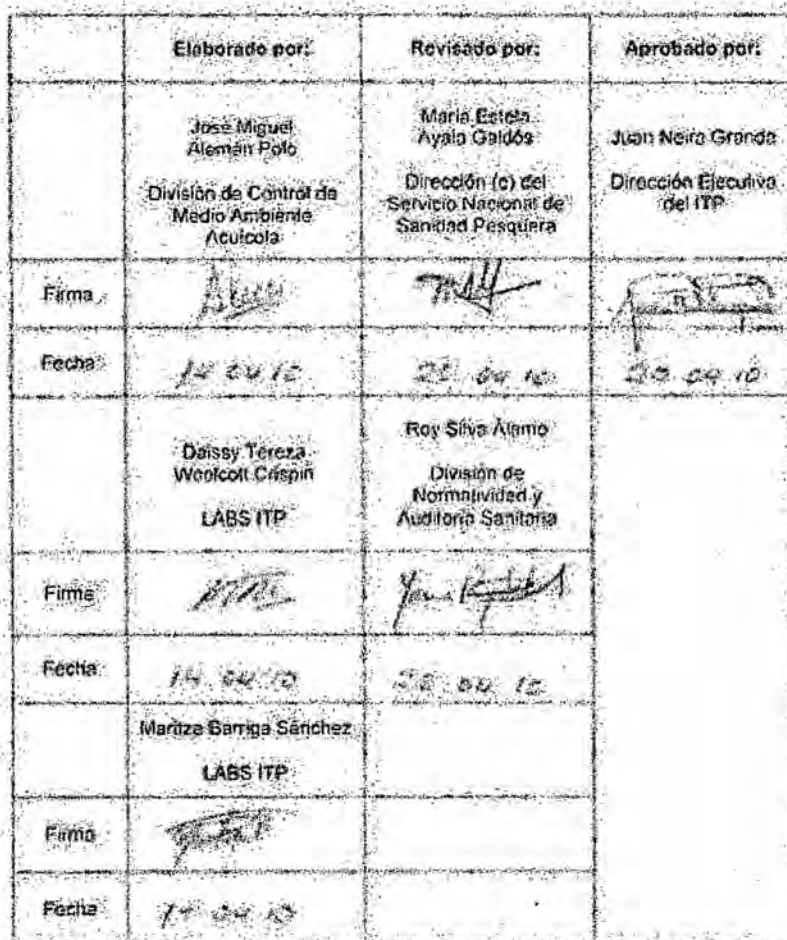 Elaborado por:
Revisado por:
Aprobado por:
José Miguel
Alemán Polo
División de Control de
Medio Ambiente
Acuícola
María Estela
Ayala Galdós
Dirección (e) del
Servicio Nacional de
Sanidad Pesquera
Juan Neira Granda
Dirección Ejecutiva
del ITP
Firma
Fecha
14 04 10
04 10
04 10
Daissy Tereza
Woolcott Crispín
LABS ITP
Roy Silva Álamo
División de
Normatividad y
Auditoría Sanitaria
Firma
Fecha
14 04 10
04 10
Maritza Barriga Sánchez
LABS ITP
Firma
Fecha
14 04 10